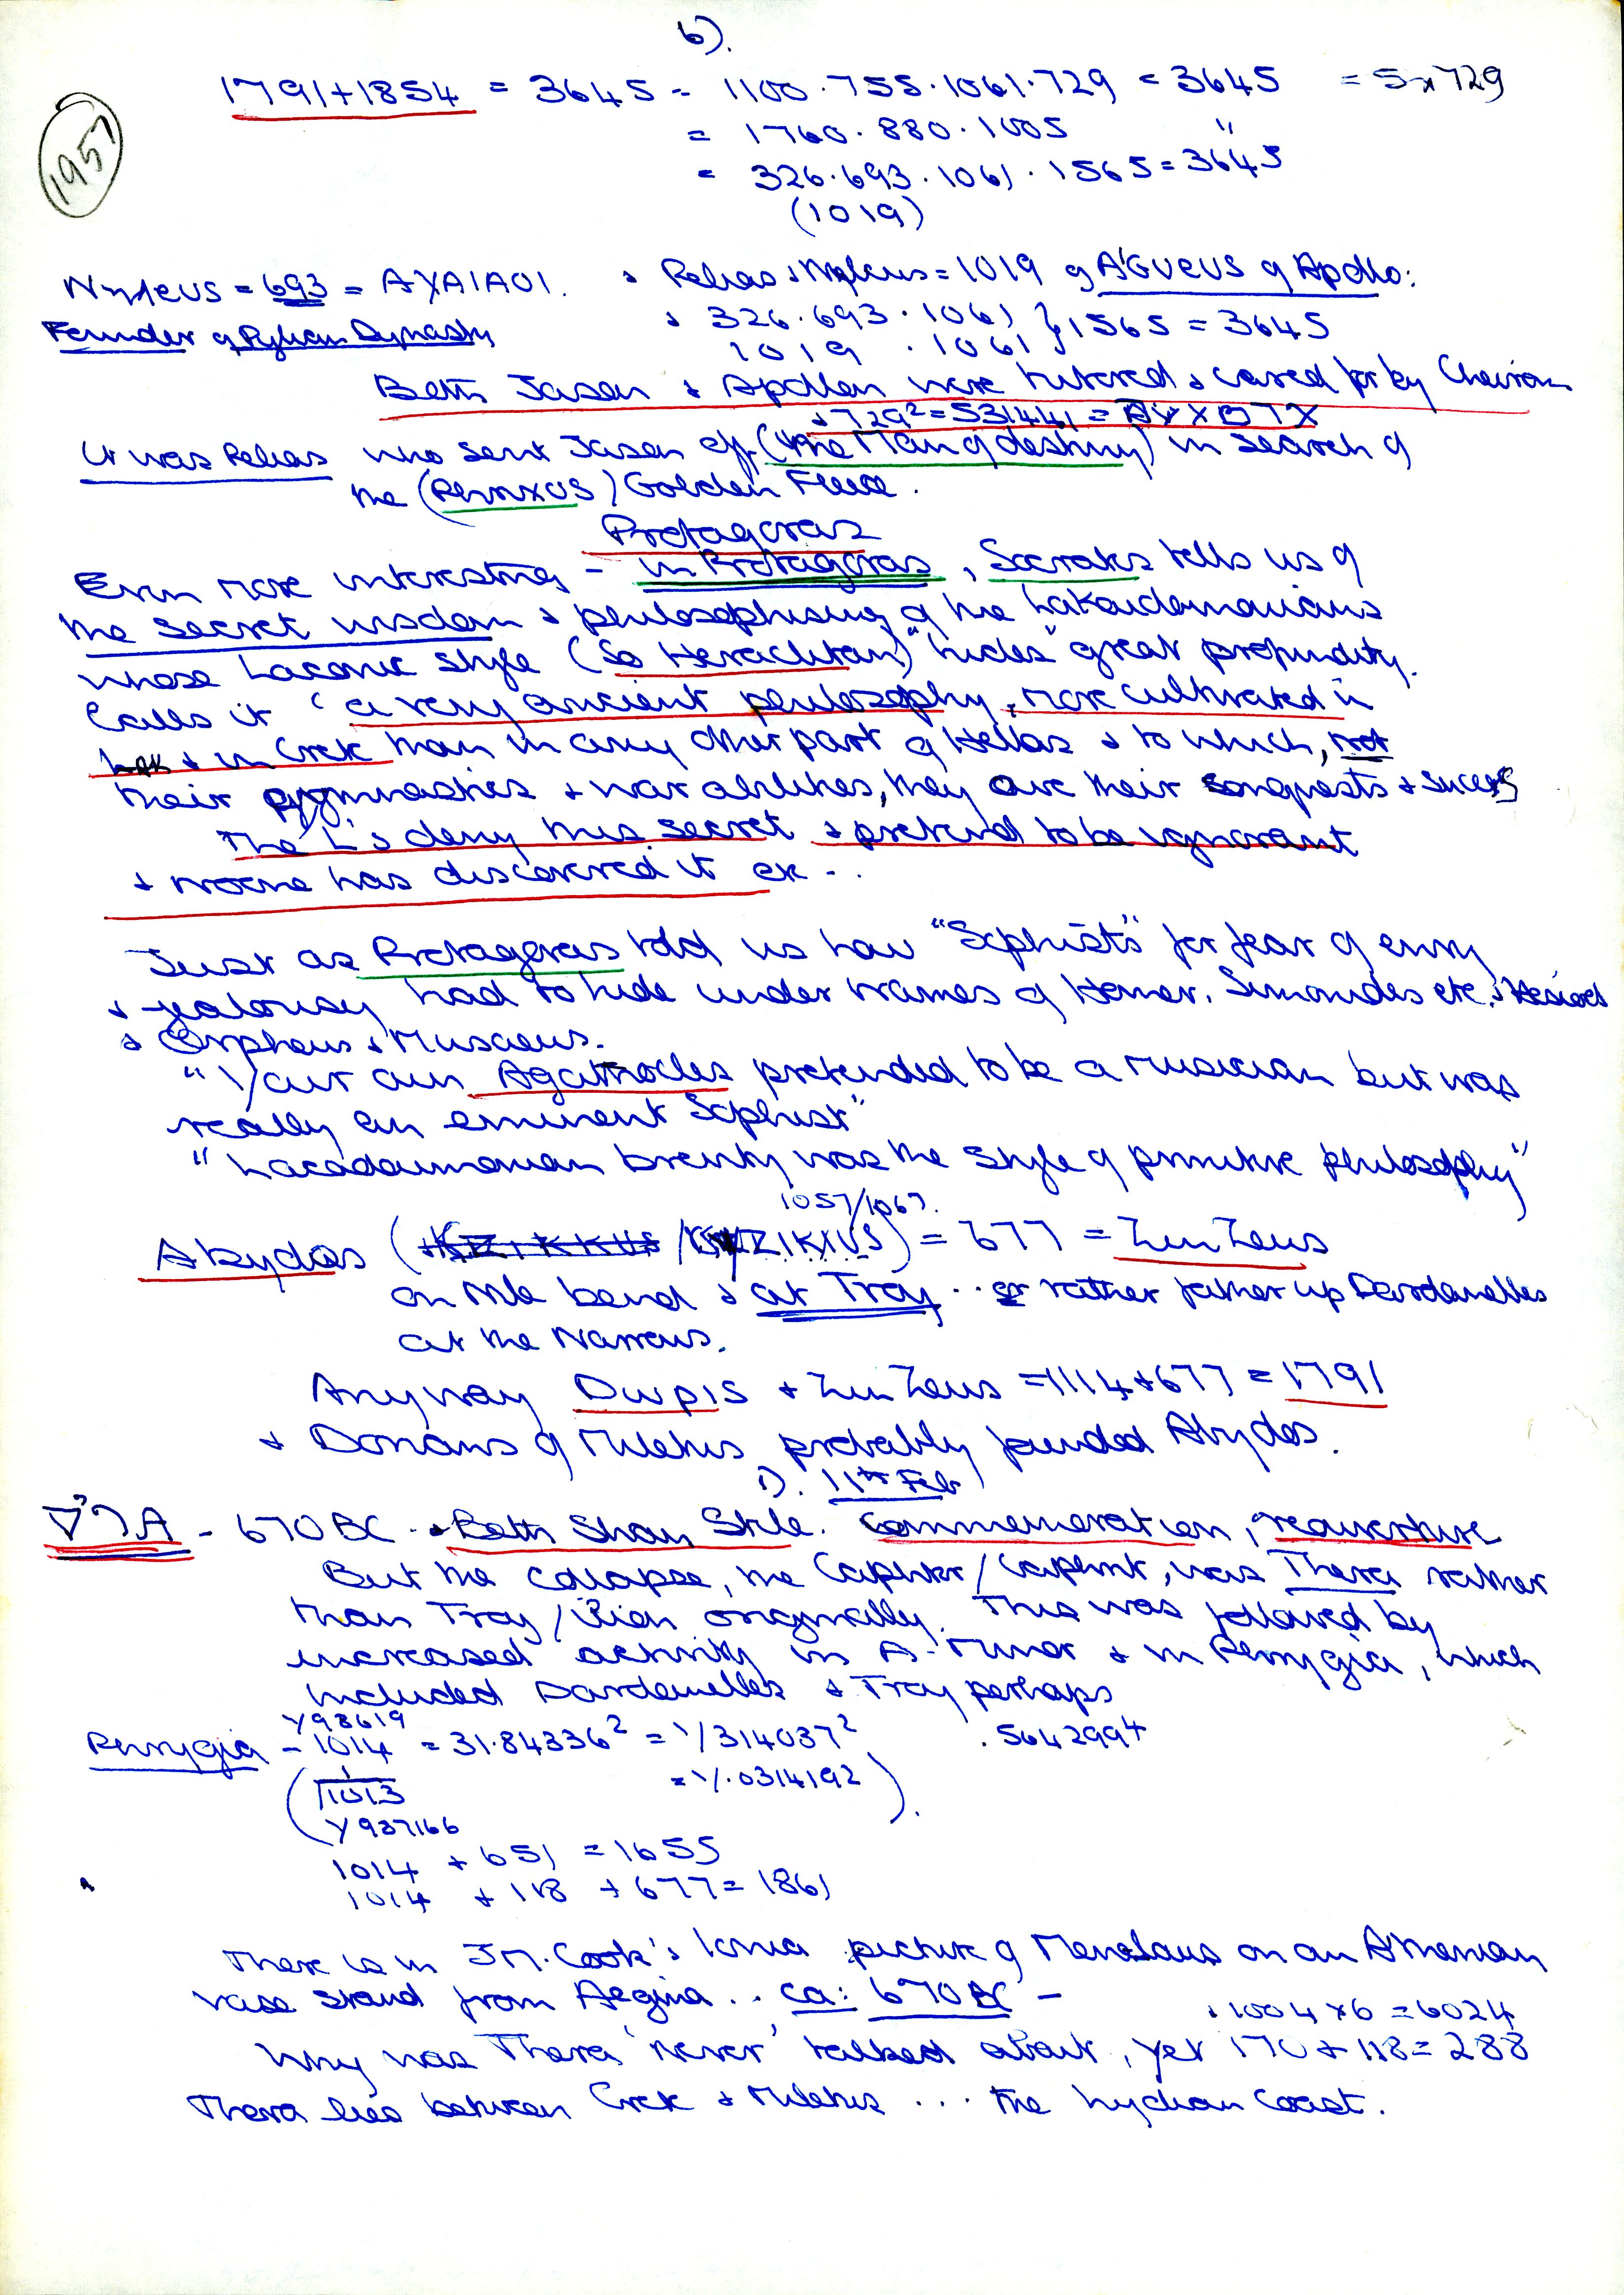 6).
1957
1791+1854 = 3645 = 1100.755.1061.729 = 3645 = 5x729
= 1760. 880. 1005 "
= 326.693.1061.1565 = 3645
(1019)
= 693 = AXAIAOI. + Pelias + = 1019 of AGUEUS of Apollo:
Founder of Pylian Dynasty + 326.693.1061 } 1565 = 3645
1019 . 1061
Both Jason & were tutored & cared for by Cheiron
+ 729² = 531441 =
It was Pelias who sent Jason off (the Man of destiny) in search of
the Golden Fleece.
Protagoras
Even more interesting - in Protagoras, Socrates tells us of
the secret wisdom & philosophising of the Lakaidemonians
whose Laconic style (so Heraclitan) "hides" great profundity.
Calls it 'a very ancient philosophy, more cultivated in
Lak & in Crete than in any other part of Hellas & to which, not
their gymnastics & war abilities, they owe their conquests & success
The L's deny this secret & pretend to be ignorant
& noone has discovered it etc ..
Just as Protagoras told us how "Sophists" for fear of envy
& jealousy had to hide under names of Homer, Simonides etc. & Hesiod
& Orpheus & Musaeus.
"Your own Agathocles pretended to be a musician but was
really an eminent Sophist"
"Lacadaimonian brevity was the style of primitive philosophy"
1057/1067.
Abydos ( ) = 677 = Zun Zeus
on Nile bend & at Troy .. or rather father up Dardanelles
at the Narrows.
Anyway Dwpis + Zun Zeus = 1114+677 = 1791
& Dorians of Miletus probably founded Abydos.
1). 11th Feb
- 670 BC .. Beth Shan Stele. Commemoration,
But the collapse, the Caphtor/ was Thera rather
than Troy / Ilion originally. This was followed by
increased activity in A. Minor & in Phrygia, which
included Dardanelles & Troy perhaps
Y98619
Phrygia - 1014 = 31.84336² = 1/314037² .5642994
( 1/1013 = 1/.0314192 ).
Y987166
1014 + 651 = 1655
1014 + 118 + 677 = 1861
There is in J.M. Cook's Ionia picture of Menelaus on an Athenian
vase stand from Aegina .. ca: 670 BC -
+ 1004x6 = 6024
Why was Thera 'never' talked about, yet 170 + 118 = 288
Thera lies between Crete & Miletus ... the Lydian Coast.